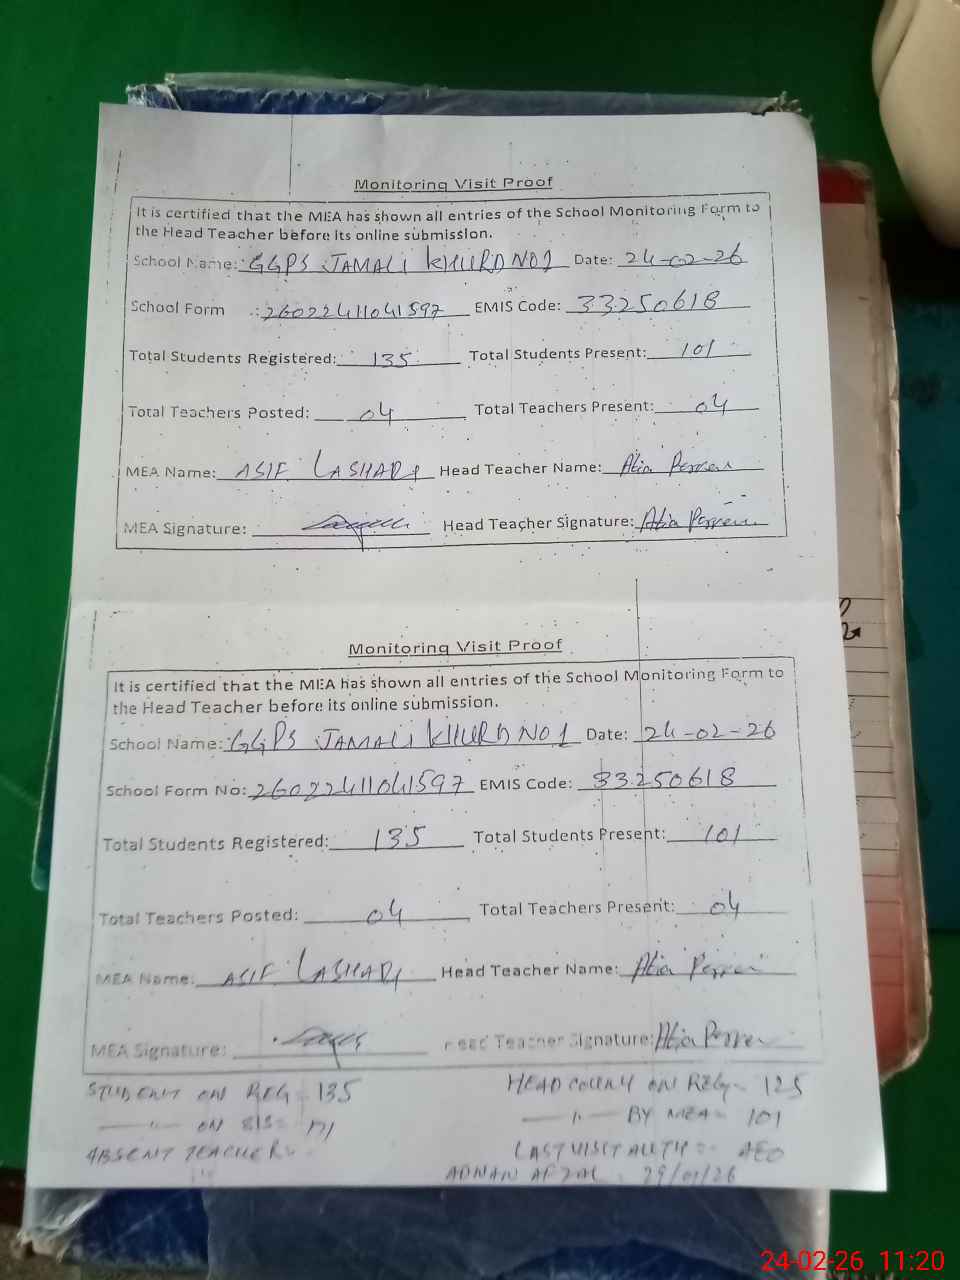 Monitoring Visit Proof
It is certified that the MEA has shown all entries of the School Monitoring Form to
the Head Teacher before its online submission.
School Name: GGPS JAMALI KHURD NO1 Date: 24-02-26
School Form : 26022411041597 EMIS Code: 33250618
Total Students Registered: 135 Total Students Present: 101
Total Teachers Posted: 04 Total Teachers Present: 04
MEA Name: ASIF LASHARI Head Teacher Name: Atia
MEA Signature: Head Teacher Signature: Atia
Monitoring Visit Proof
It is certified that the MEA has shown all entries of the School Monitoring Form to
the Head Teacher before its online submission.
School Name: GGPS JAMALI KHURD NO1 Date: 24-02-26
School Form No: 26022411041597 EMIS Code: 33250618
Total Students Registered: 135 Total Students Present: 101
Total Teachers Posted: 04 Total Teachers Present: 04
MEA Name: ASIF LASHARI Head Teacher Name: Atia
MEA Signature: Head Teacher Signature: Atia
STUDENT ON REG - 135 HEAD COUNT ON REG - 125
ON SIS - 171 BY MEA - 101
ABSENT TEACHER - LAST VISIT AUTH :- AEO
ADNAN AFZAL 29/01/26
24-02-26 11:20